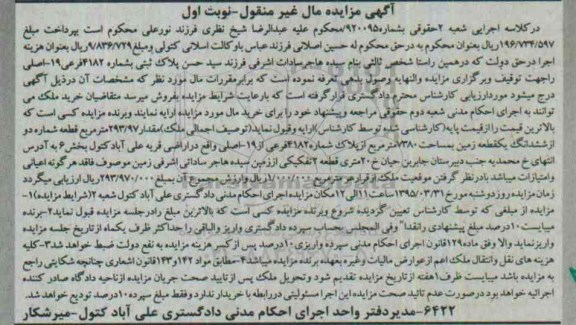 آگهی مزایده مال غیر منقول-نوبت اول
درکلاسه اجرایی شعبه ۲حقوقی بشماره۹۲۰۰۹۵ محکوم علیه عبدالرضا شیخ نظری فرزند نورعلی محکوم است بپرداخت مبلغ
۱۹۶/۷۳۴/۵۹۷ریال بعنوان محکوم به درحق محکوم له حسین اصلانی فرزند عباس باوکالت اسلامی کتولی ومبلغ۹/۸۳۶/۷۲۹ریال بعنوان هزینه
اجرا درحق دولت که درهمین راستا شخص ثالثی بنام سیده هاجرسادات اشرفی فرزند سید حسن پلاک ثبتی بشماره ۴۱۸۲فرعی۱۹-اصلی
راجهت توقیف وبرگزاری مزایده والنهایه وصول مبلغی تعرفه نموده است که برابرمقررات مال مورد نظر که مشخصات آن درذیل آگهی
درج میشود موردارزیابی کارشناس محترم دادگستری قرارگرفته است که بارعایت شرایط مزایده بفروش میرسد متقاضیان خرید ملک می
توانند به اجرای احکام مدنی شعبه دوم حقوقی مراجعه وپیشنهاد خود را برای خرید مال مورد مزایده ارایه نمایند وبرنده مزایده کسی است که
بالاترین قیمت را از قیمت پایه(کارشناسی شده توسط کارشناس)ارایه وقبول نماید(توصیف اجمالی ملک)مقدار۲۹۳/۹۷مترمربع قطعه شماره دو
ازششدانگ یکقطعه زمین بمساحت۷۳۸۰مترمربع ازپلاک شماره۴۱۸۲فرعی از۱۹-اصلی واقع دراراضی قریه علی آبادکتول بخش۶ به آدرس
انتهای خ محمدیه جنب دبیرستان جابربن حیان خ۲۰متری قطعه ۲تفکیکی اززمین سیده هاجرساداتی اشرفی زمین موصوف فاقد هرگونه اعیانی
وامتیازات میباشد بادرنظر گرفتن موقعیت ملک ازقرارهرمترمربع۱/۰۰۰/۰۰۰ریال وارزش مجموع آن بمبلغ ۲۹۳/۹۷۰/۰۰۰ریال ارزیابی میگردد
زمان مزایده روزدوشنبه مورخ ۱۳۹۵/۰۳/۳۱ازساعت۱۱الی۱۲مکان مزایده اجرای احکام مدنی دادگستری علی آباد کتول شعبه ۲(شرایط مزایده)۱-
مزایده از مبلغی که توسط کارشناس تعیین گردیده شروع وبرنده مزایده کسی است که بالاترین مبلغ رادرجلسه مزایده قبول نماید۲-برنده
میبایست۱۰درصد مبلغ پیشنهادی رانقدا" وفی المجلس بحساب سپرده دادگستری واریز والباقی را حداکثر ظرف یکماه ازتاریخ جلسه مزایده
واریزنماید والا وفق ماده۱۲۹قانون اجرای احکام مدنی سپرده واریزی۱۰درصد پس از کسر هزینه مزایده به نفع دولت ضبط خواهد شد۳-کلیه
هزینه های نقل وانتقال ملک اعم ازعوارض مالیات وغیره بعهده برنده مزایده میباشد۴-مطابق مواد۱۴۲و۱۴۳قانون اشعاری چنانچه شکایتی راجع
به مزایده باشد میبایست ظرف۱هفته ازتاریخ مزایده تقدیم شود وتحویل ملک پس ازتایید صحت جریان مزایده ازناحیه دادگاه صادر کننده
اجرائیه خواهد بود درصورت عدم تائید صحت مزایده این اجرا مسئولیتی دررابطه با خریدار ندارد وفقط مبلغ سپرده۱۰درصد تودیع خواهد شد.
۶۴۲۲-مدیردفتر واحد اجرای احکام مدنی دادگستری علی آباد کتول-میرشکار